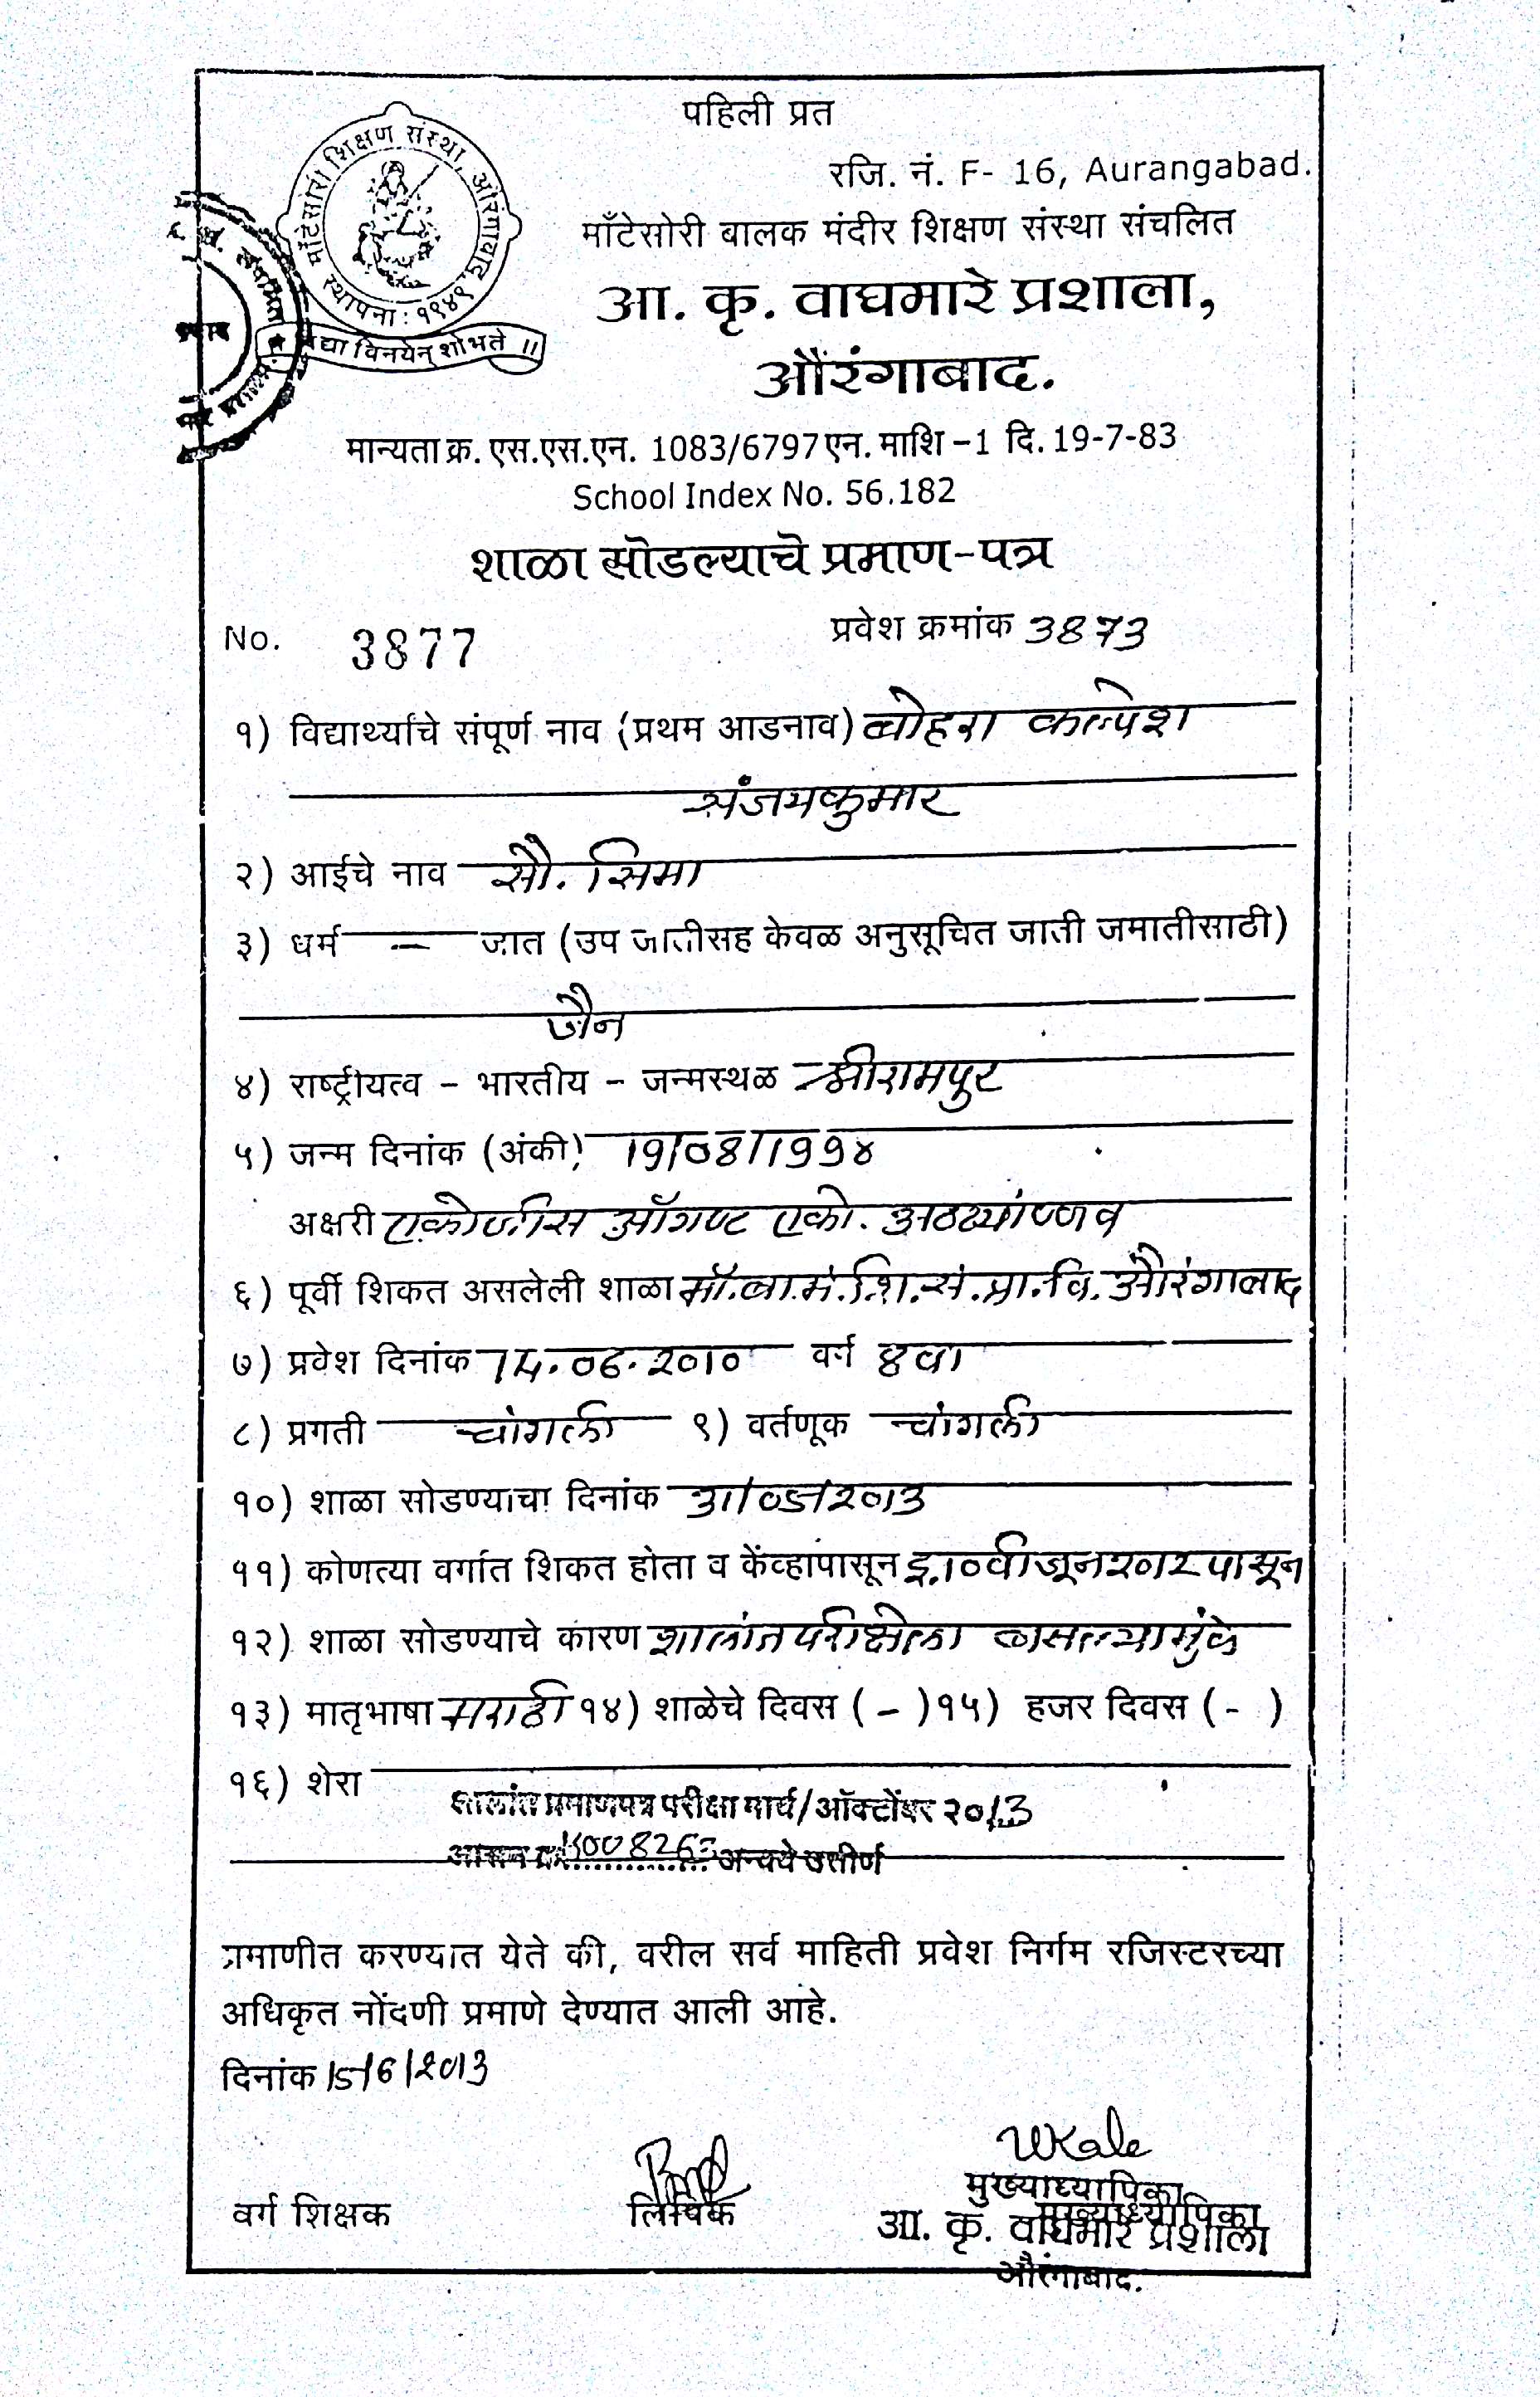 पहिली प्रत
रजि. नं. F- 16, Aurangabad.
माँटेसोरी शिक्षण संस्था, औरंगाबाद
स्थापना : १९४९
विनयेन् शोभते ॥
माँटेसोरी बालक मंदीर शिक्षण संस्था संचलित
आ. कृ. वाघमारे प्रशाला,
औरंगाबाद.
मान्यता क्र. एस.एस.एन. 1083/6797 एन. माशि -1 दि. 19-7-83
School Index No. 56.182
शाळा सोडल्याचे प्रमाण-पत्र
No. 3877 प्रवेश क्रमांक 3873
१) विद्यार्थ्याचे संपूर्ण नाव (प्रथम आडनाव) बोहरा कल्पेश
संजयकुमार
२) आईचे नाव सौ. सिमा
३) धर्म - जात (उप जातीसह केवळ अनुसूचित जाती जमातीसाठी)
जैन
४) राष्ट्रीयत्व - भारतीय - जन्मस्थळ श्रीरामपुर
५) जन्म दिनांक (अंकी) 19/08/199४
अक्षरी एकोणीस ऑगष्ट एको.
६) पूर्वी शिकत असलेली शाळा मॉ.बा.मं.शि.सं.प्रा.वि. औरंगाबाद
७) प्रवेश दिनांक 14.06.2010 वर्ग ८वा
८) प्रगती चांगली ९) वर्तणूक चांगली
१०) शाळा सोडण्याचा दिनांक 31/05/2013
११) कोणत्या वर्गात शिकत होता व केंव्हापासून इ.10वी जून 2012 पासून
१२) शाळा सोडण्याचे कारण शालांत परीक्षेला बसल्यामुळे
१३) मातृभाषा मराठी १४) शाळेचे दिवस ( - ) १५) हजर दिवस ( - )
१६) शेरा
शालांत प्रमाणपत्र परीक्षा मार्च/ऑक्टोंबर २०13
आसन क्र. अन्वये उत्तीर्ण
प्रमाणीत करण्यात येते की, वरील सर्व माहिती प्रवेश निर्गम रजिस्टरच्या
अधिकृत नोंदणी प्रमाणे देण्यात आली आहे.
दिनांक 15/6/2013
WKale
मुख्याध्यापिका
वर्ग शिक्षक लिपिक मुख्याध्यापिका
आ. कृ. वाघमारे प्रशाला
औरंगाबाद.